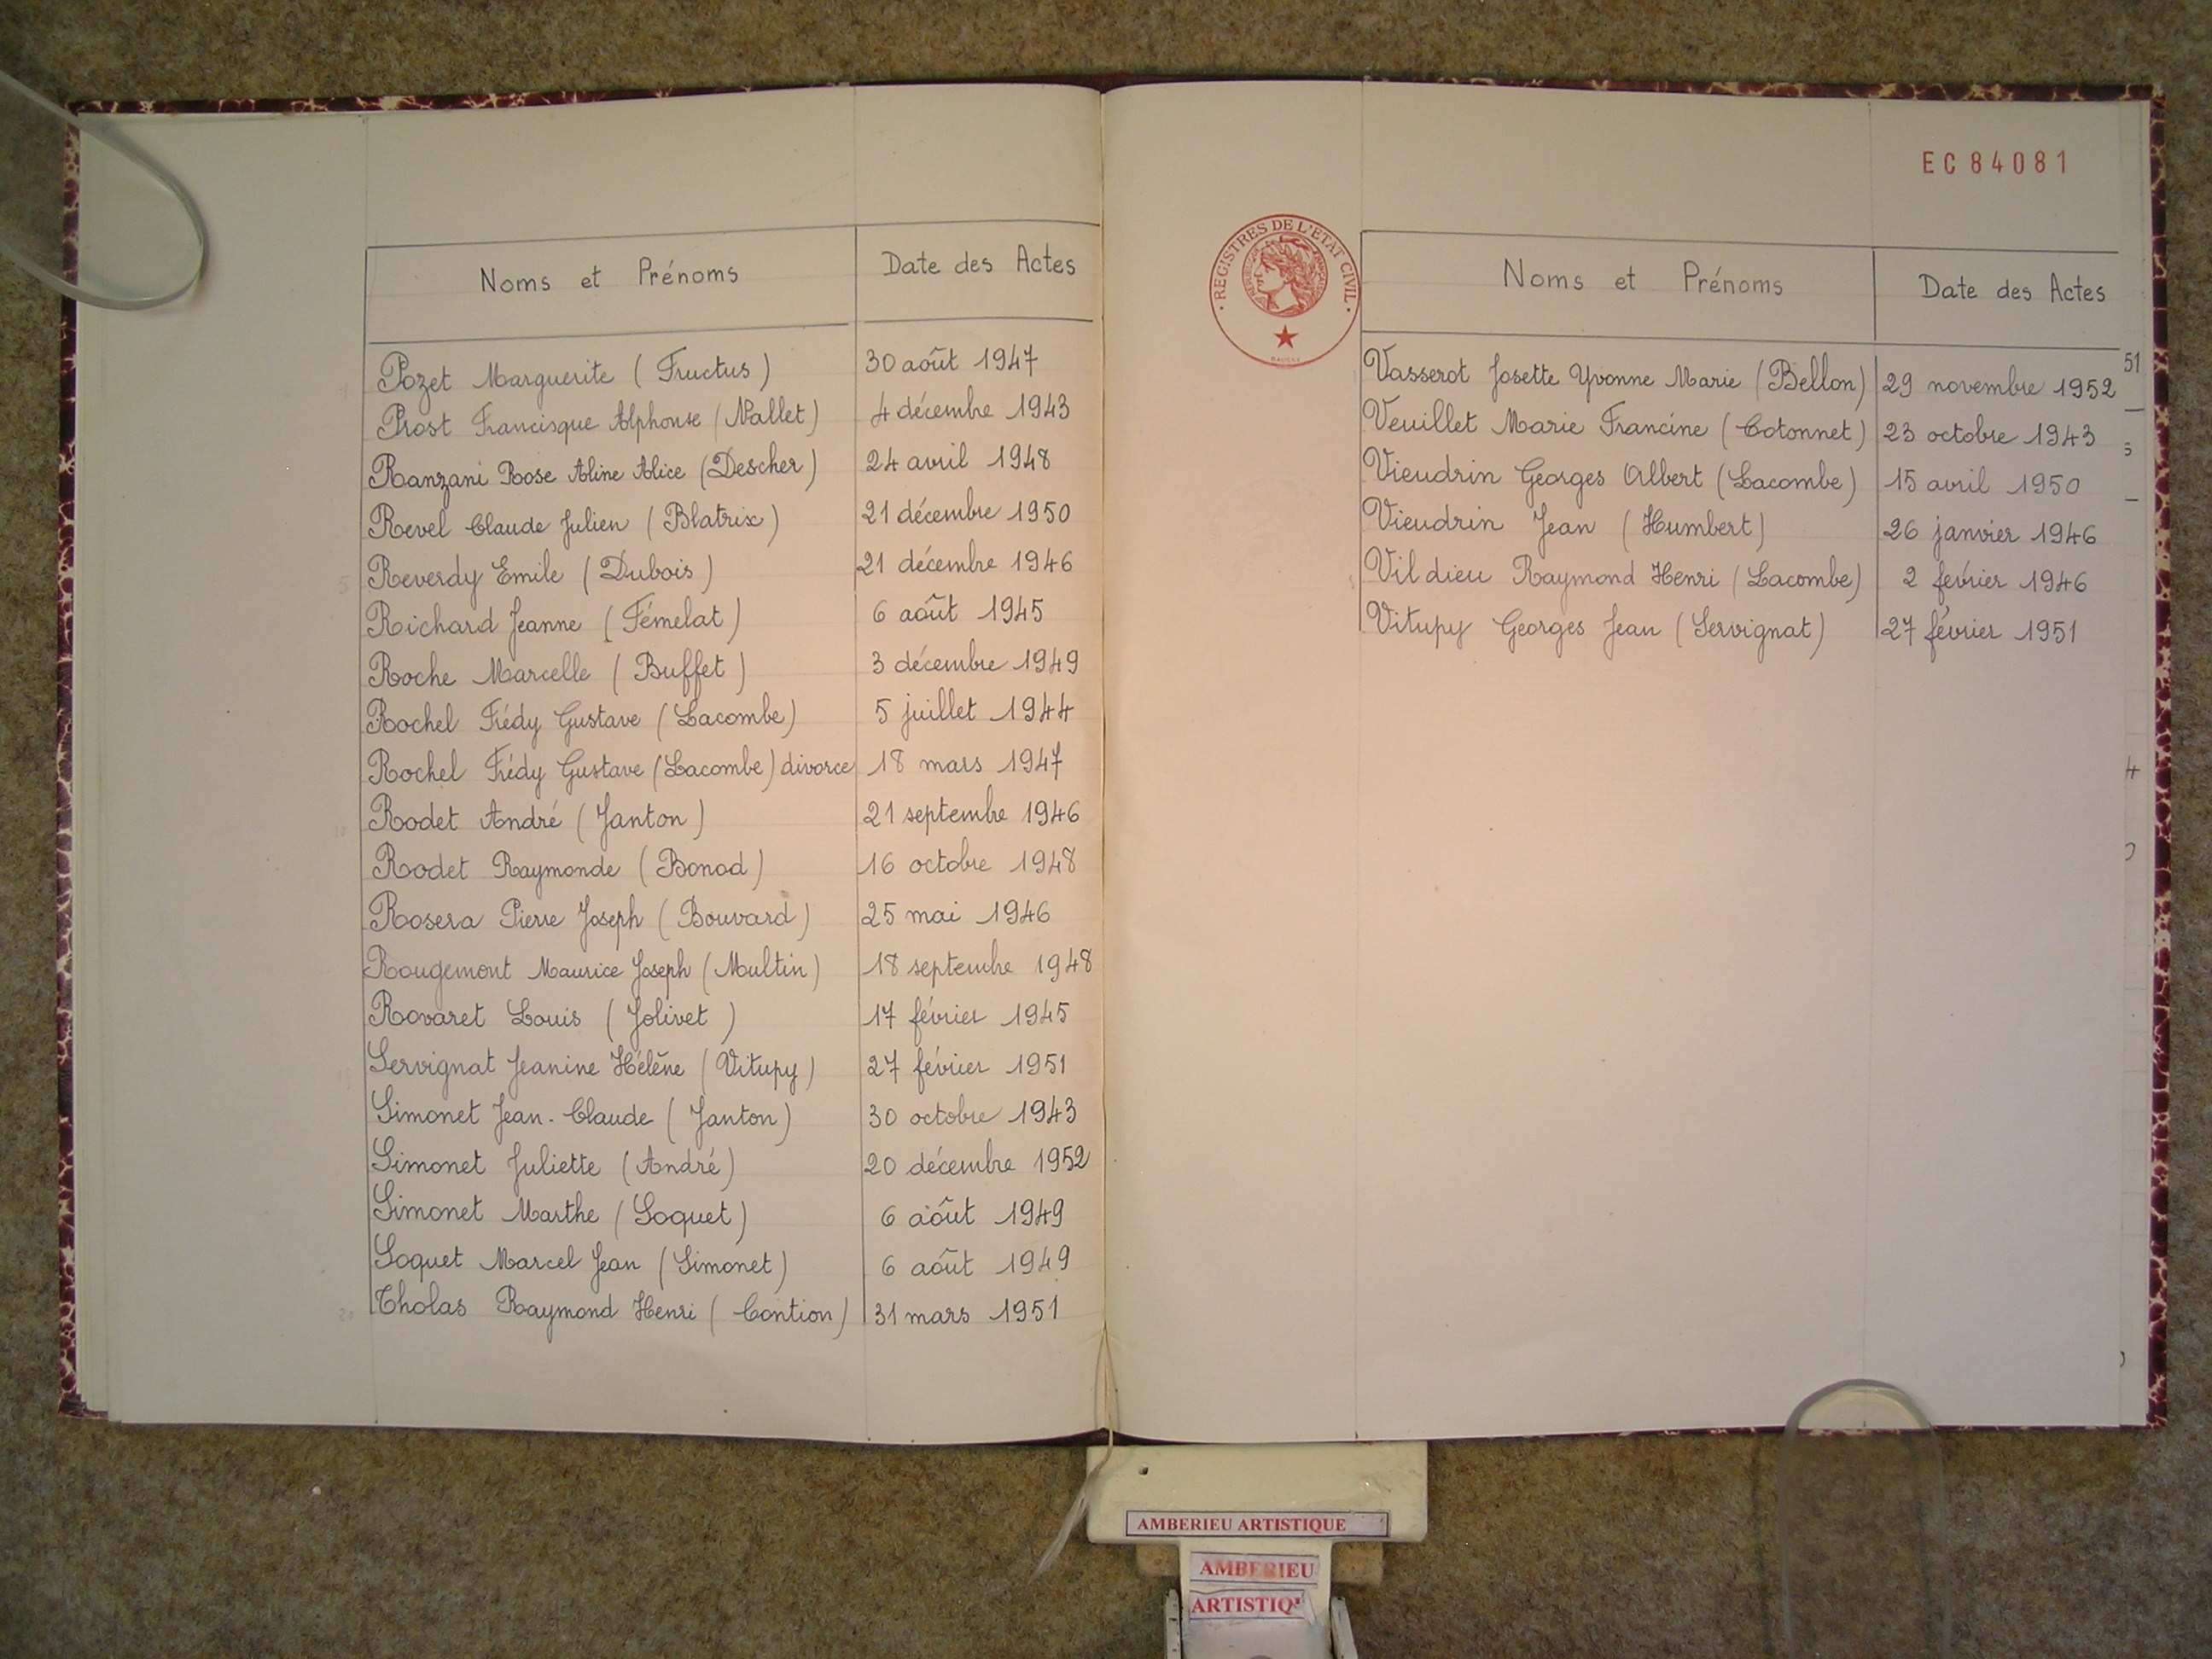 Noms et Prénoms Date des Actes
Pozet Marguerite (Fructus) 30 août 1947
Prost Francisque Alphonse (Nallet) 4 décembre 1943
Ranzani Rose Aline Alice (Descher) 24 avril 1948
Revel Claude Julien (Blatrix) 21 décembre 1950
Reverdy Emile (Dubois) 21 décembre 1946
Richard Jeanne (Fémelat) 6 août 1945
Roche Marcelle (Buffet) 3 décembre 1949
Rochel Frédy Gustave (Lacombe) 5 juillet 1944
Rochel Frédy Gustave (Lacombe) divorce 18 mars 1947
Rodet André (Janton) 21 septembre 1946
Rodet Raymonde (Bonod) 16 octobre 1948
Rosera Pierre Joseph (Bouvard) 25 mai 1946
Rougemont Maurice Joseph (Multin) 18 septembre 1948
Rovaret Louis (Jolivet) 17 février 1945
Servignat Jeanine Hélène (Vitupy) 27 février 1951
Simonet Jean-Claude (Janton) 30 octobre 1943
Simonet Juliette (André) 20 décembre 1952
Simonet Marthe (Soquet) 6 août 1949
Soquet Marcel Jean (Simonet) 6 août 1949
Tholas Raymond Henri (Contion) 31 mars 1951
EC 84081
REGISTRES DE L'ETAT CIVIL
Noms et Prénoms Date des Actes
51
Vasserot Josette Yvonne Marie (Bellon) 29 novembre 1952
Veuillet Marie Francine (Cotonnet) 23 octobre 1943
Vieudrin Georges Albert (Lacombe) 15 avril 1950
Vieudrin Jean (Humbert) 26 janvier 1946
Vildieu Raymond Henri (Lacombe) 2 février 1946
Vitupy Georges Jean (Servignat) 27 février 1951
4
AMBERIEU ARTISTIQUE
AMBERIEU
ARTISTIQ